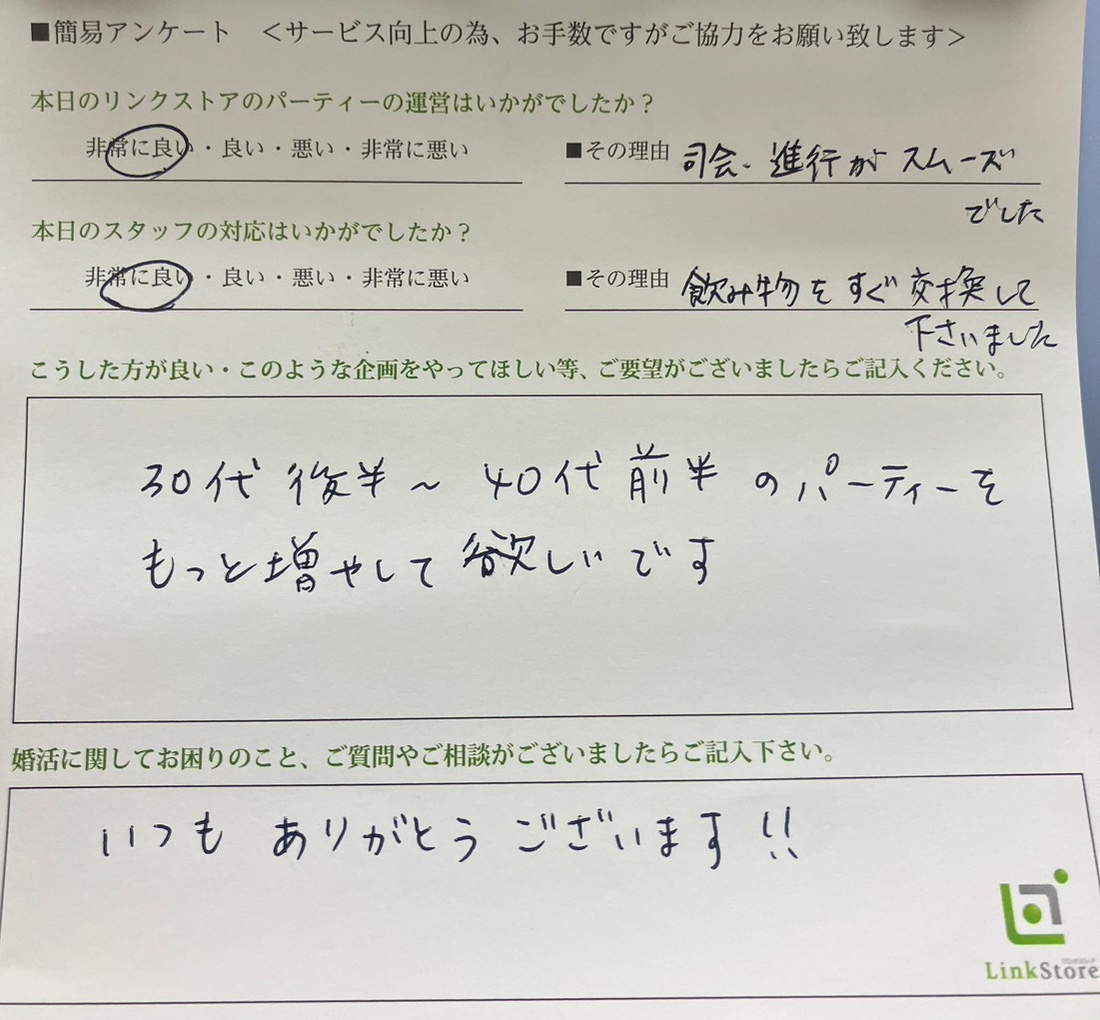 ■簡易アンケート ＜サービス向上の為、お手数ですがご協力をお願い致します＞
本日のリンクストアのパーティーの運営はいかがでしたか？
非常に良い・良い・悪い・非常に悪い ■その理由 司会、進行がスムーズ
でした
本日のスタッフの対応はいかがでしたか？
非常に良い・良い・悪い・非常に悪い ■その理由 飲み物をすぐ交換して
下さいました
こうした方が良い・このような企画をやってほしい等、ご要望がございましたらご記入ください。
30代後半～40代前半のパーティーを
もっと増やして欲しいです
婚活に関してお困りのこと、ご質問やご相談がございましたらご記入下さい。
いつもありがとうございます!!
リンクストア
LinkStore